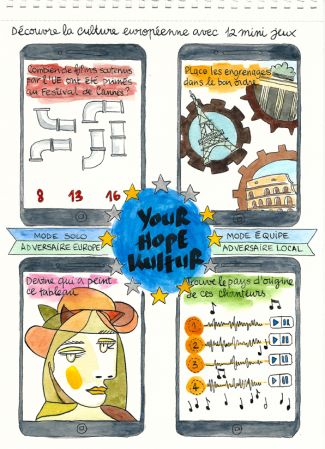 Découvre la culture européenne avec 12 mini jeux
Combien de films soutenus
par l'UE ont été primés
au Festival de Cannes?
8 13 16
Place les engrenages
dans le bon ordre
YOUR
HOPE
KULTUR
MODE SOLO
ADVERSAIRE EUROPE
MODE ÉQUIPE
ADVERSAIRE LOCAL
Devine qui a peint
ce tableau
Trouve le pays d'origine
de ces chanteurs
1
2
3
4